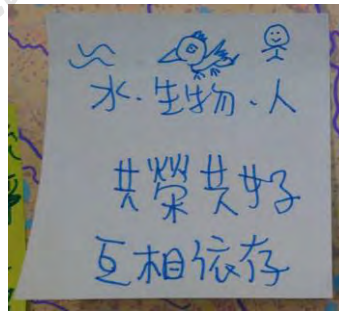 水．生物．人
共榮共好
互相依存